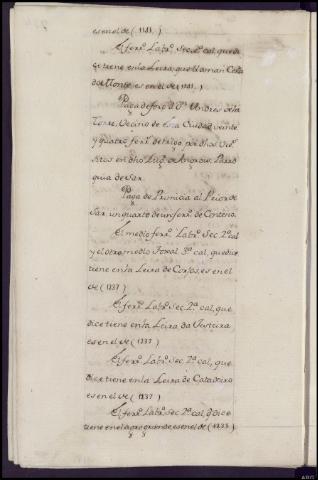 es en el de (1181.)
El ferr.º Labr.º Sec.ª cal, que di
ce tiene en la Leira, que llaman Cara
do Monte es en el de (1181.)
Paga de foro á D.n Andres de la
Torre, Vecino de esta Ciudad veinte
y quatro ferr.s de trigo por dhos vie.s
sitos en dho Lug.r de Angrois, Parro
quia de Sar.
Paga de Primicia al Prior de
Sar un quarto de un ferr.º de Centeno.
El medio ferr.º Labr.º Sec. 2.ª cal
y el otro medio Toxal 3.ª cal, que dice
tiene en la Leira de Corzos, es en el
de (1237.)
El ferr.º Labr.º Sec. 2.ª cal, que
dice tiene en la Leira da Vestura
es en el de (1237.)
El ferr.º Labr.º Sec. 2.ª cal, que
dice tiene en la Leira de Catadeiro
es en el de (1237.)
El ferr.º Labr.º Sec. 2.ª cal, q dice
tiene en el agro grande es en el de (1233.)